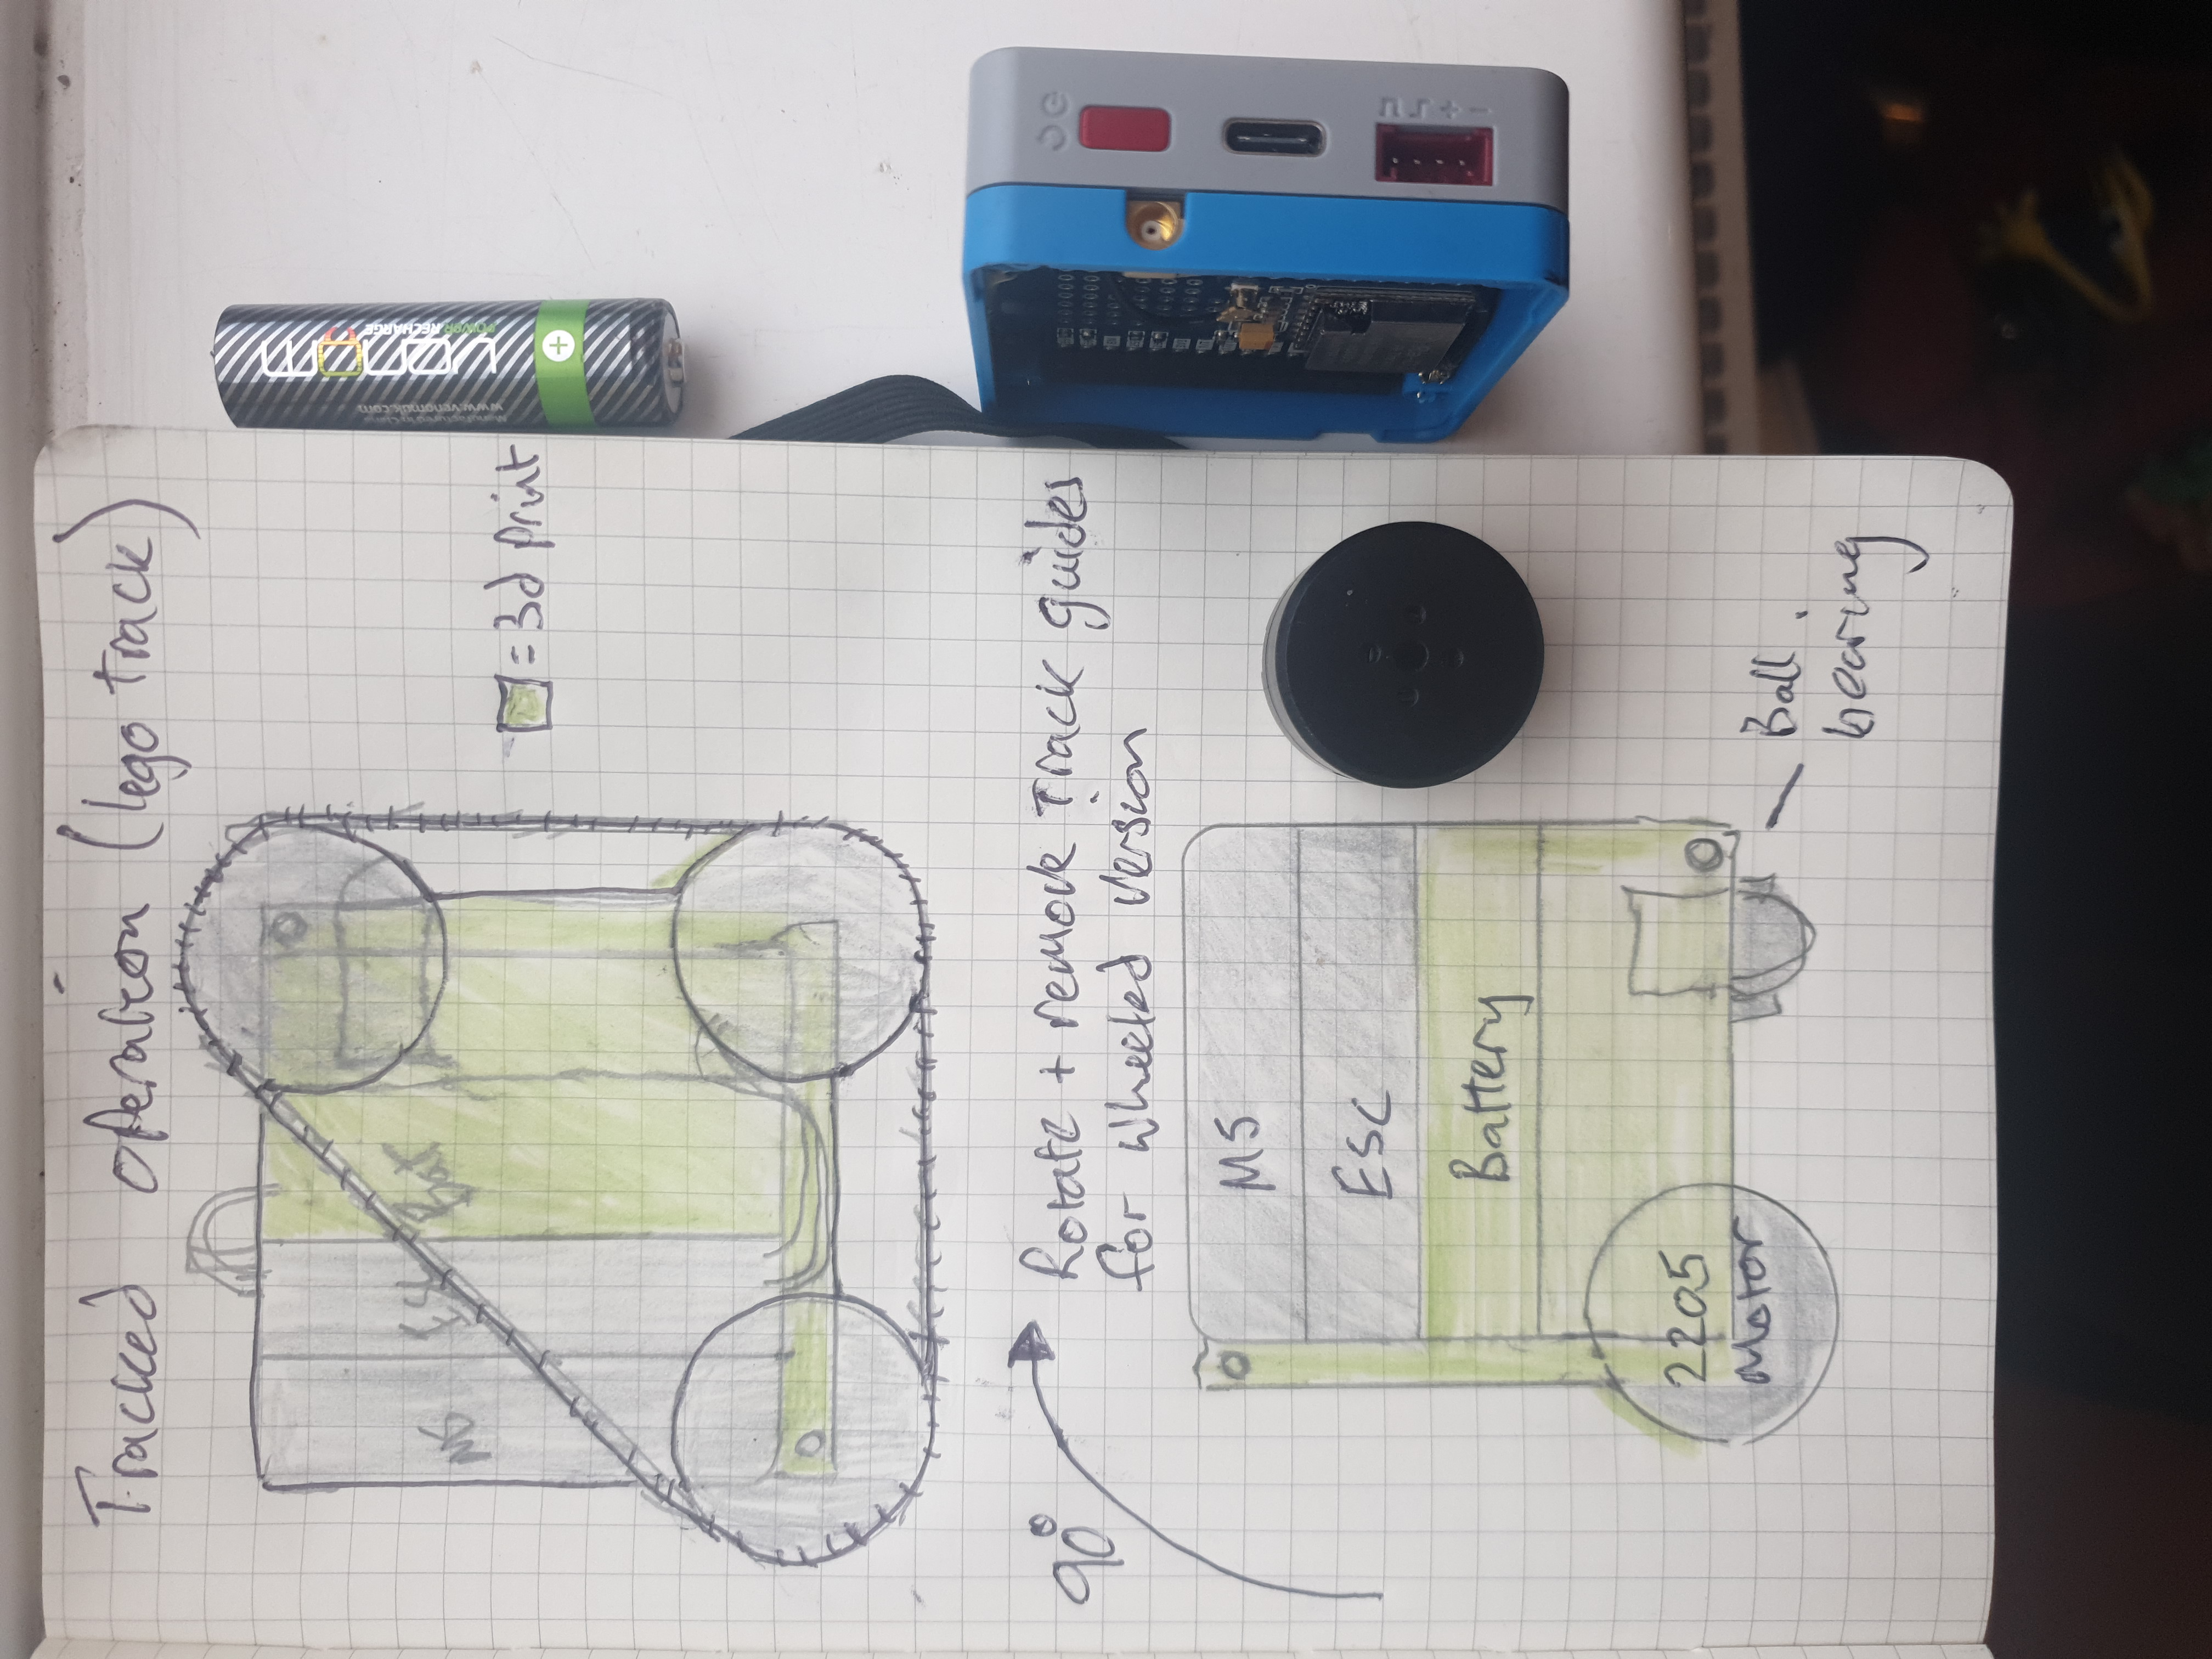 Tracked operation (lego track)
MS
ESC
Bat
= 3d print
90°
Rotate + remove Track guides
for wheeled version
MS
ESC
Battery
2205
Motor
Ball
bearing
venom
POWER RECHARGE
www.venomuk.com
+